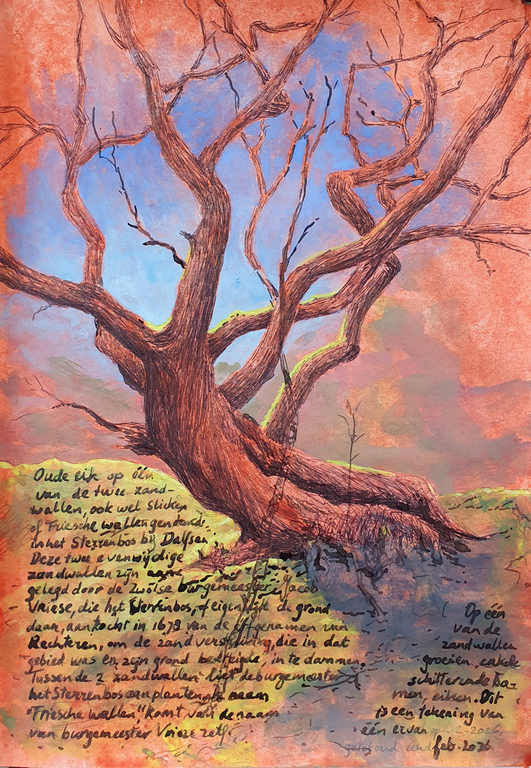 Oude eik op één
van de twee zand-
wallen, ook wel Stiekens
of Friesche wallen genoemd.
in het Sterrenbos bij Dalfsen
Deze twee evenwijdige
zandwallen zijn aange
gelegd door de Zwolse burgemeester Jacob
Vriese, die het Sterrenbos, of eigenlijk de grond
daar, aankocht in 1679 van de erfgenamen van
Rechteren, om de zandverstuiving, die in dat
gebied was en zijn grond bedreigde, in te dammen.
Tussen de 2 zandwallen liet de burgemeester
het Sterrenbos aanplanten. De naam
"Friesche wallen" komt van de naam
van burgemeester Vriese zelf.
Op één
van de
zandwallen
groeien, enkele
schitterende bo-
men, eiken. Dit
is een tekening van
één ervan
feb. 2026